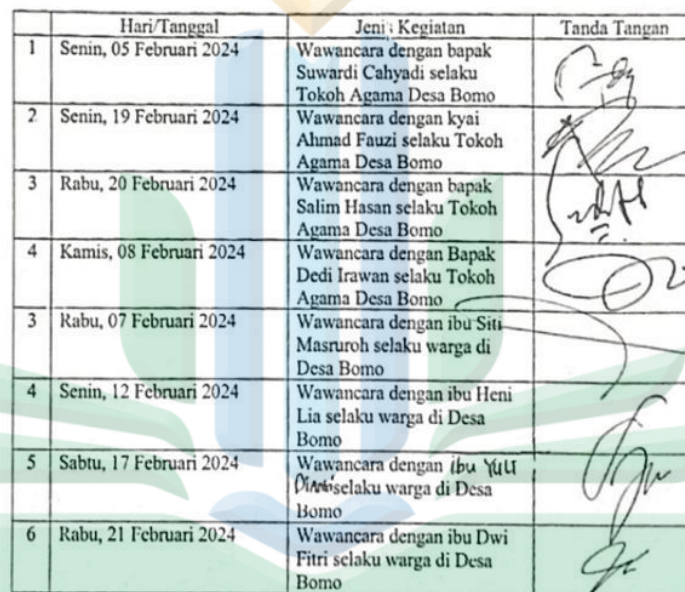 Hari/Tanggal Jenis Kegiatan Tanda Tangan
1 Senin, 05 Februari 2024 Wawancara dengan bapak
Suwardi Cahyadi selaku
Tokoh Agama Desa Bomo
2 Senin, 19 Februari 2024 Wawancara dengan kyai
Ahmad Fauzi selaku Tokoh
Agama Desa Bomo
3 Rabu, 20 Februari 2024 Wawancara dengan bapak
Salim Hasan selaku Tokoh
Agama Desa Bomo
4 Kamis, 08 Februari 2024 Wawancara dengan Bapak
Dedi Irawan selaku Tokoh
Agama Desa Bomo
3 Rabu, 07 Februari 2024 Wawancara dengan ibu Siti
Masruroh selaku warga di
Desa Bomo
4 Senin, 12 Februari 2024 Wawancara dengan ibu Heni
Lia selaku warga di Desa
Bomo
5 Sabtu, 17 Februari 2024 Wawancara dengan ibu Yuli
selaku warga di Desa
Bomo
6 Rabu, 21 Februari 2024 Wawancara dengan ibu Dwi
Fitri selaku warga di Desa
Bomo